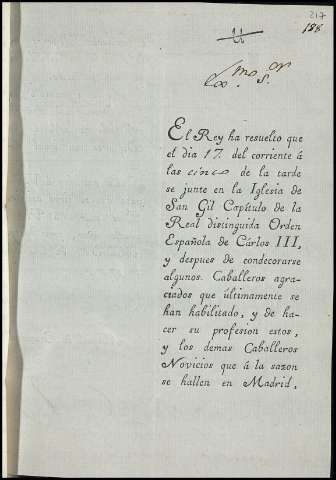 217
188
11
Exmo. Sor.
El Rey ha resuelto que
el dia 17. del corriente á
las cinco de la tarde
se junte en la Iglesia de
San Gil Capítulo de la
Real distinguida Orden
Española de Cárlos III,
y despues de condecorarse
algunos Caballeros agra-
ciados que últimamente se
han habilitado, y de ha-
cer su profesion estos,
y los demas Caballeros
Novicios que á la sazon
se hallen en Madrid,